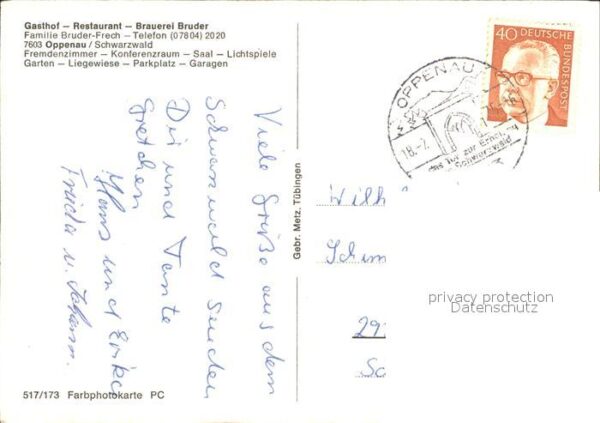 Gasthof — Restaurant — Brauerei Bruder
Familie Bruder-Frech — Telefon (07804) 2020
7603 Oppenau / Schwarzwald
Fremdenzimmer — Konferenzraum — Saal — Lichtspiele
Garten — Liegewiese — Parkplatz — Garagen
Viele Grüße aus dem
Schwarzwald senden
Dir und Tante
Gretchen
Hans und Erika
Frieda u. Johann.
Gebr. Metz, Tübingen
40 DEUTSCHE BUNDESPOST
OPPENAU
18.-2.
das Tor zur
Schwarzwald
Wilh
29
privacy protection
Datenschutz
517/173 Farbphotokarte PC